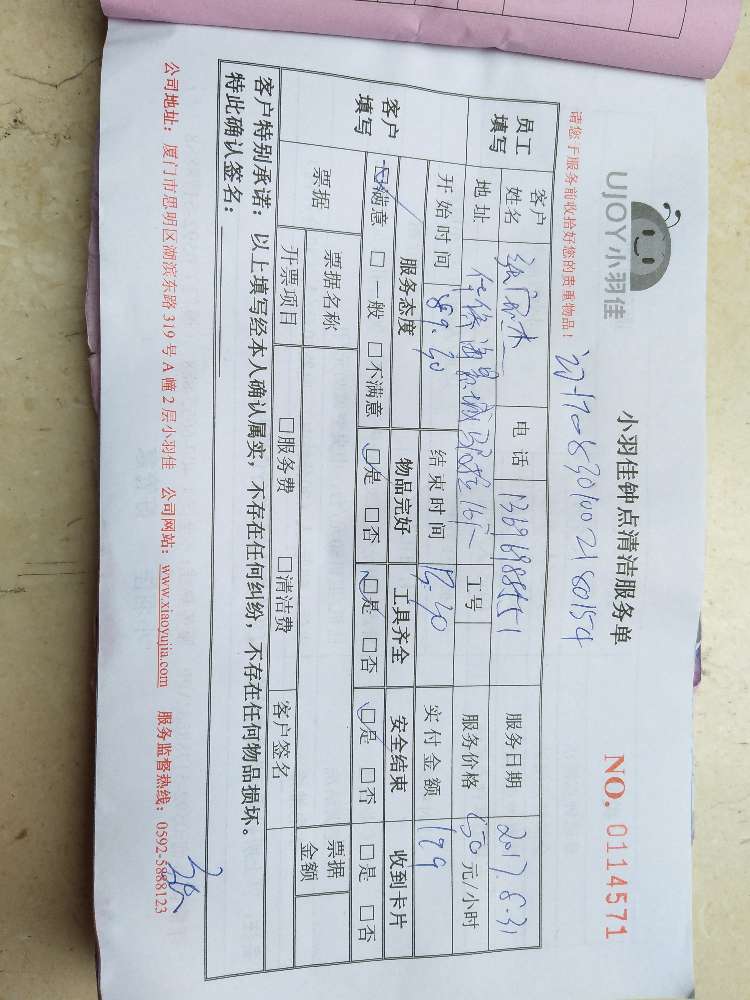 UJOY小羽佳
小羽佳钟点清洁服务单
NO. 0114571
请您于服务前收拾好您的贵重物品！
员工填写
客户姓名
电话
服务日期 2017.8.31
地址
工号
服务价格 元/小时
开始时间
结束时间
实付金额
客户填写
服务态度 物品完好 工具齐全 安全结束 收到卡片
☑满意 □一般 □不满意 ☑是 □否 ☑是 □否 ☑是 □否 □是 □否
票据
票据名称
票据金额
开票项目 □服务费 □清洁费 客户签名
客户特别承诺：以上填写经本人确认属实，不存在任何纠纷，不存在任何物品损坏。
特此确认签名：
公司地址：厦门市思明区湖滨东路319号A幢2层小羽佳 公司网站：www.xiaoyujia.com 服务监督热线：0592-5888123